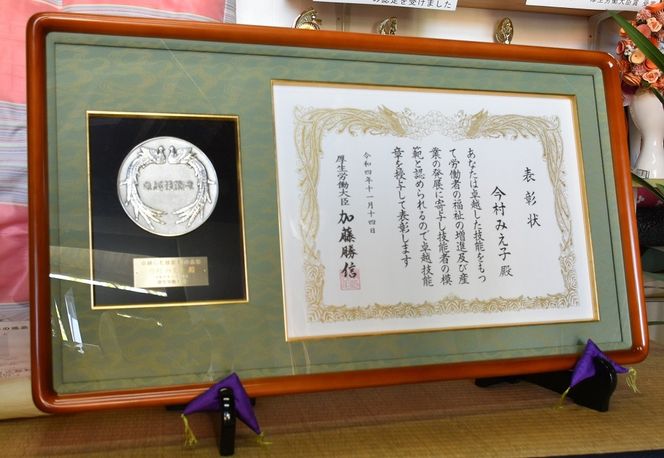 の認定を受けました
厚生労働大臣賞
表彰状
今村みえ子殿
あなたは卓越した技能をもつ
て労働者の福祉の増進及び産
業の発展に寄与し技能者の模
範と認められるので卓越技能
章を授与して表彰します
令和四年十一月十四日
厚生労働大臣 加藤勝信